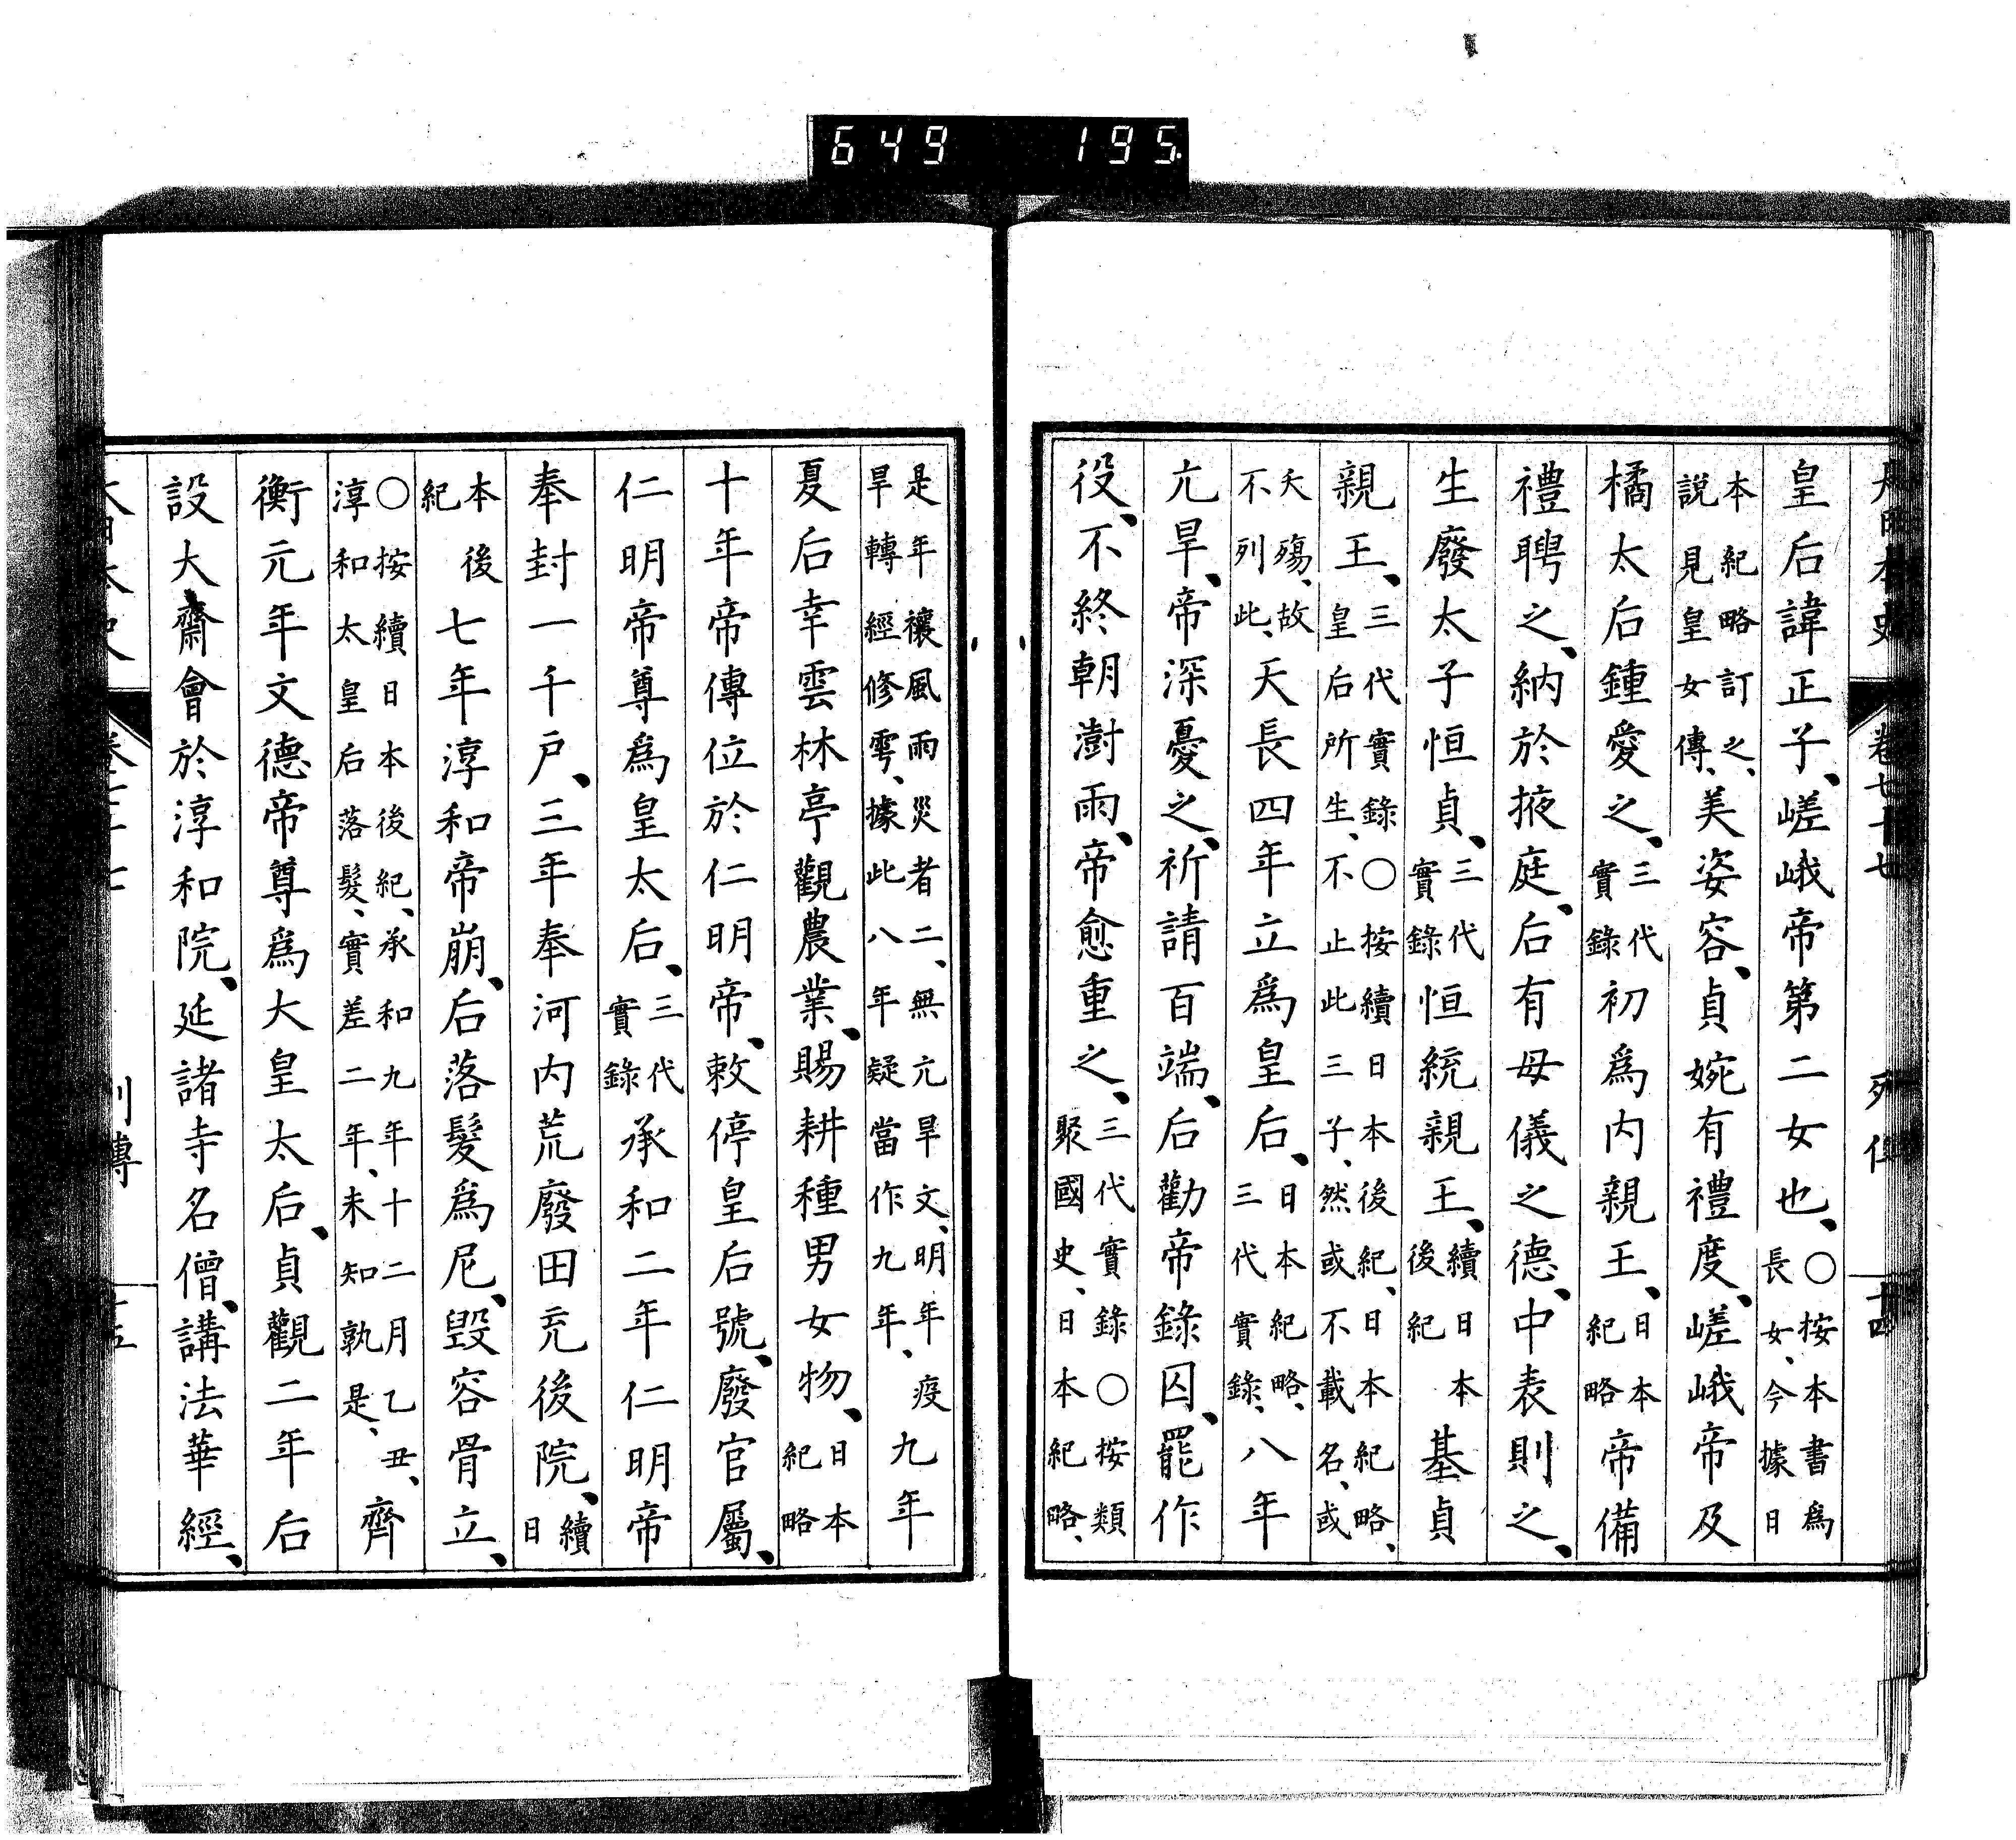 649 195
大日本史 卷七十七 列傳 十四
皇后諱正子、嵯峨帝第二女也、〇按本書爲長女、今據日
本紀略訂之、說見皇女傳、美姿容、貞婉有禮度、嵯峨帝及
橘太后鍾愛之、三代實錄初爲內親王、日本紀略帝備
禮聘之、納於掖庭、后有母儀之德、中表則之、
生廢太子恒貞、三代實錄恒統親王、續日本後紀基貞
親王、三代實錄〇按續日本後紀、日本紀略、皇后所生、不止此三子、然或不載名、或
夭殤、故不列此、天長四年立爲皇后、日本紀略、三代實錄、八年
亢旱、帝深憂之、祈請百端、后勸帝錄囚、罷作
役、不終朝澍雨、帝愈重之、三代實錄〇按類聚國史、日本紀略、
是年禳風雨災者二、無亢旱文、明年疫旱轉經修雩、據此八年疑當作九年、九年
夏后幸雲林亭觀農業、賜耕種男女物、日本紀略
十年帝傳位於仁明帝、敕停皇后號、廢官屬、
仁明帝尊爲皇太后、三代實錄承和二年仁明帝
奉封一千戶、三年奉河內荒廢田充後院、續日
本後紀七年淳和帝崩、后落髮爲尼、毀容骨立、
〇按續日本後紀、承和九年十二月乙丑、淳和太皇后落髮、實差二年、未知孰是、齊
衡元年文德帝尊爲大皇太后、貞觀二年后
設大齋會於淳和院、延諸寺名僧、講法華經、
大日本史 卷七十七 列傳 十五